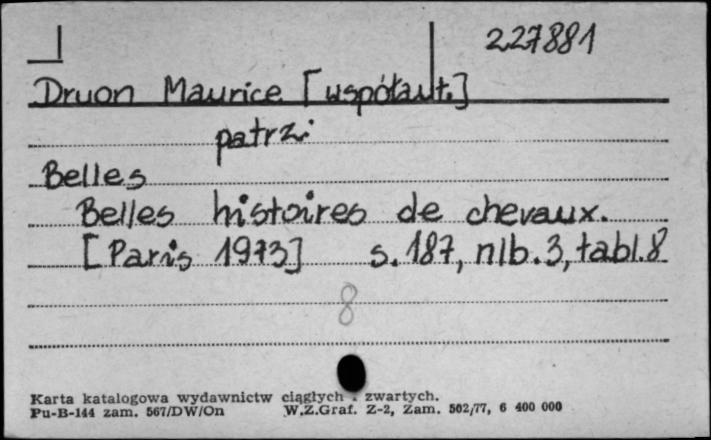 227881
Druon Maurice [współaut.]
patrz:
Belles
Belles histoires de chevaux.
[Paris 1973] s. 187, nlb. 3, tabl. 8
8
Karta katalogowa wydawnictw ciągłych i zwartych.
Pu-B-144 zam. 567/DW/On W.Z.Graf. Z-2, Zam. 502/77, 6 400 000